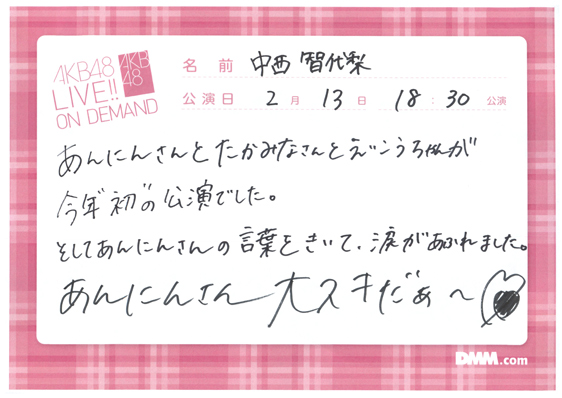 AKB48
LIVE!!
ON DEMAND
AKB
48
名前 中西智代梨
公演日 2月13日 18:30公演
あんにんさんとたかみなさんとえごこうちゃんが
今年初の公演でした。
そしてあんにんさんの言葉をきいて、涙があふれました。
あんにんさん大スキだぁ〜
DMM.com